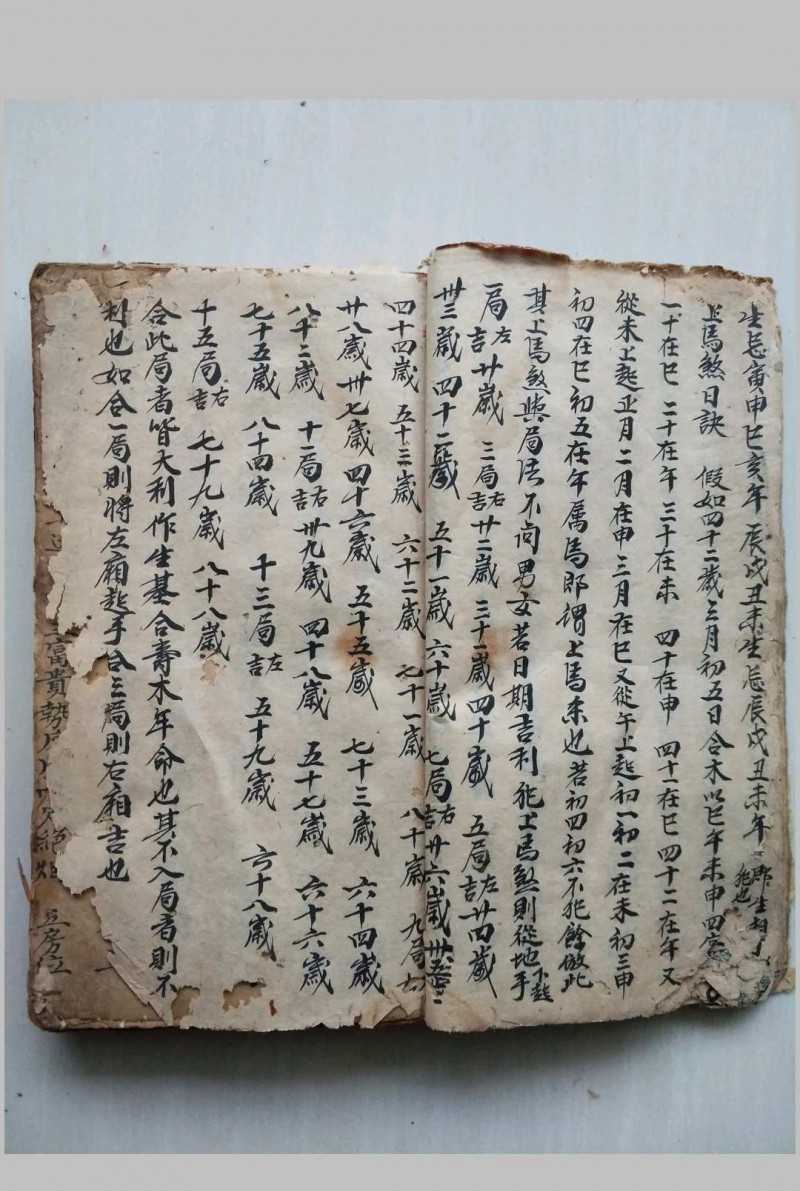 生忌寅申巳亥年 辰戌丑未生忌辰戌丑未年
犯也
上馬煞日訣 假如四十二歲三月初五日合木以巳午未申四宮
一十在巳 二十在午 三十在未 四十在申 四十一在巳 四十二在午又
從未上起正月二月在申三月在巳又從午上起初一初二在未初三申
初四在巳初五在午屬馬即謂上馬煞也若初四初六不犯餘倣此
其上馬煞與局法不尚男女若日期吉利犯上馬煞則從地下起手
一局左吉 廿歲 三局右吉 廿二歲 三十一歲 四十歲 五局左吉 廿四歲
卅三歲 四十二歲 五十一歲 六十歲 七局右吉 廿六歲 卅五
四十四歲 五十三歲 六十二歲 七十一歲 八十歲 九局
廿八歲 卅七歲 四十六歲 五十五歲 七十三歲 六十四歲
八十二歲 十一局右吉 卅九歲 四十八歲 五十七歲 六十六歲
七十五歲 八十四歲 十三局左吉 五十九歲 六十八歲
十五局右吉 七十九歲 八十八歲
合此局者皆大利作生基合壽木年命也其不入局者則不
利也如合一局則將左廂起手合三局則右廂吉也
富貴
絕
房位